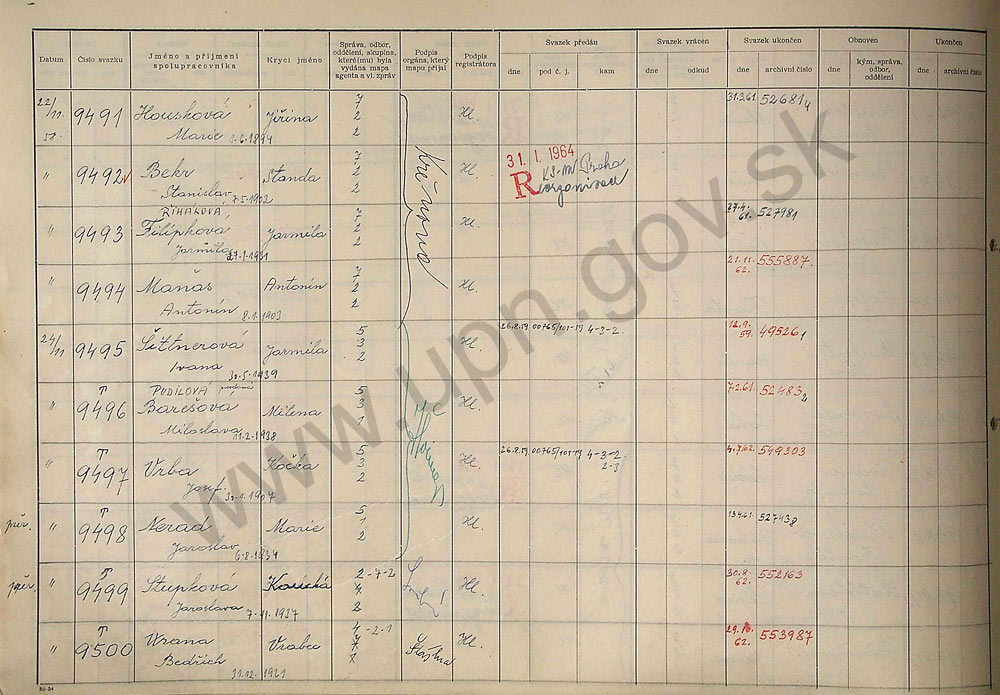 Datum
Číslo svazku
Jméno a příjmení spolupracovníka
Krycí jméno
Správa, odbor, oddělení, skupina, které(mu) byla vydána mapa agenta a vl. zpráv
Podpis orgána, který mapu přijal
Podpis registrátora
Svazek předán
dne
pod č. j.
kam
Svazek vrácen
dne
odkud
Svazek ukončen
dne
archivní číslo
Obnoven
dne
kým, správa, odbor, oddělení
Ukončen
dne
archivní číslo
22/11 9491 Housková Jiřina 7 2 2 Hl. 31.3.61 526814
58. Marie 1894
" 9492 Bekr Standa 7 2 2 Hl. 31. I. 1964 R KS-MV Praha
Stanislav 7.5.1902
ŘÍHÁKOVÁ
" 9493 Filípková Jarmila 7 2 2 Hl. 27.4.61. 527981
Jarmila 1931
" 9494 Maňas Antonín 7 2 2 Hl. 21.11.62. 555887.
Antonín 8.1.1903
24/11 9495 Šittnerová Jarmila 5 3 2 Hl. 26.8.59 00765/101-59 4-3-2. 12.9.59. 495261
Ivana 30.5.1939
PUDILOVÁ
" T 9496 Barešova Milena 5 3 1 Hl. 7.2.61. 524832
Miloslava 11.2.1938
" T 9497 Vrba Kočka 5 3 2 Hl. 26.8.59 00765/101-59 4-3-2 2-3 4.7.62. 549303
Josef 1907
pěr. " T 9498 Nerad Marie 5 1 2 Hl. 527438
Jaroslav 6.8.1934
pěr. " T 9499 Stupková Koucká 2-7-2 4 2 Hl. 30.8.62. 552163
Jaroslava 7.11.1927
" T 9500 Vrana Vrabec 4-2-1 Šťastná Hl. 29.10.62. 553987
Bedřich 31.12.1921
SG-34
www.upn.gov.sk